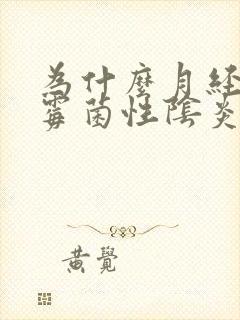 為什麼月経
霉菌性陰炎
黄覺